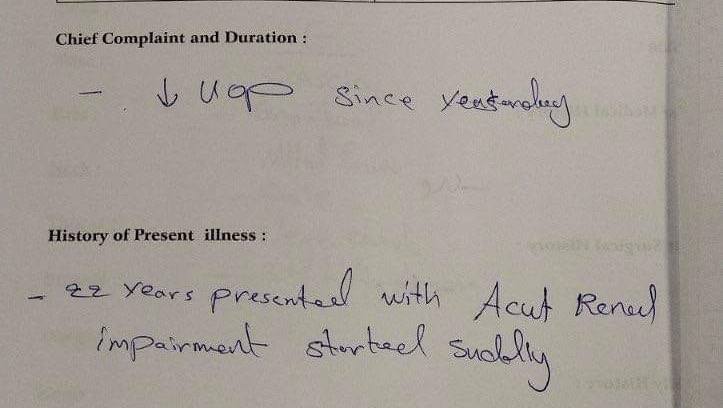 Chief Complaint and Duration :
- ↓ UOP since yeasterday
History of Present illness :
- 22 years presented with Acut Renal
impairment started suddly